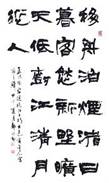 移舟泊煙渚日
暮客愁新野曠
天低樹江清月
近人